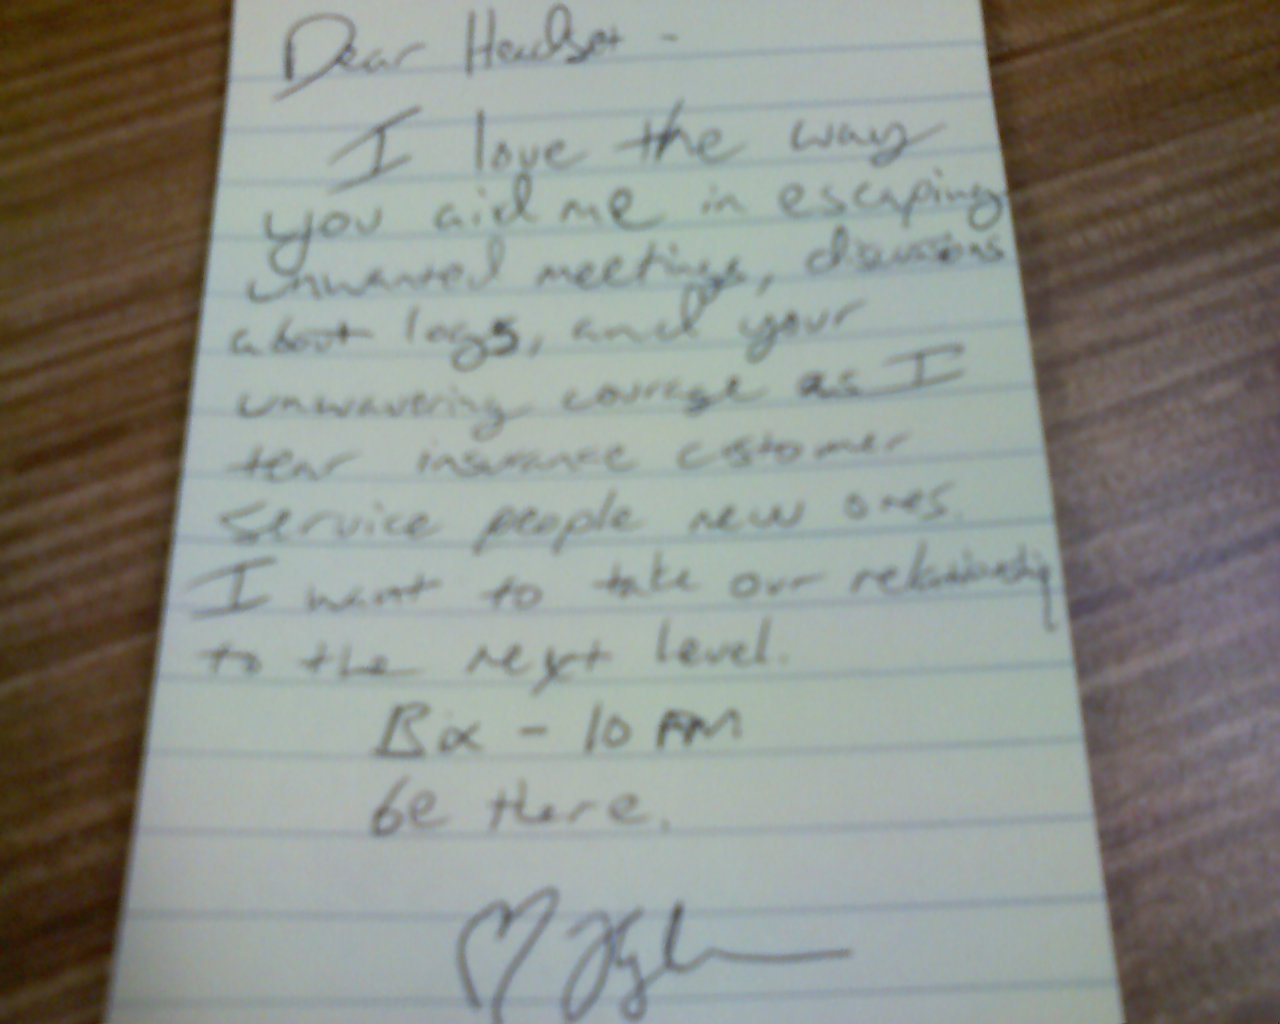 Dear Headset -
I love the way
you aid me in escaping
unwanted meetings, discussions
about logs, and your
unwavering courage as I
tear insurance customer
service people new ones.
I want to take our relationship
to the next level.
Bix - 10 PM
be there.